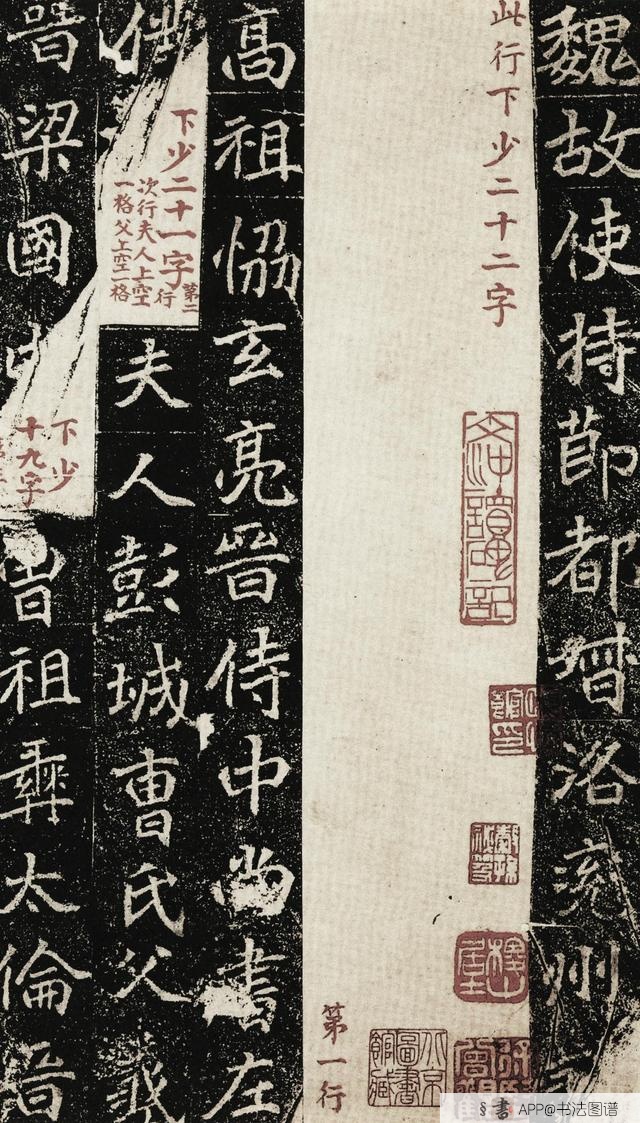 魏故使持莭都督洛兖州
此行下少二十二字
第一行
北京圖書館藏
高祖恊玄亮晉侍中尚書左
下少二十一字
第二行
次行夫人上空
一格父上空一格
夫人彭城曹氏父羲
晉梁國
下少
十九字
祖彝太倫晉
§書 APP@书法图谱